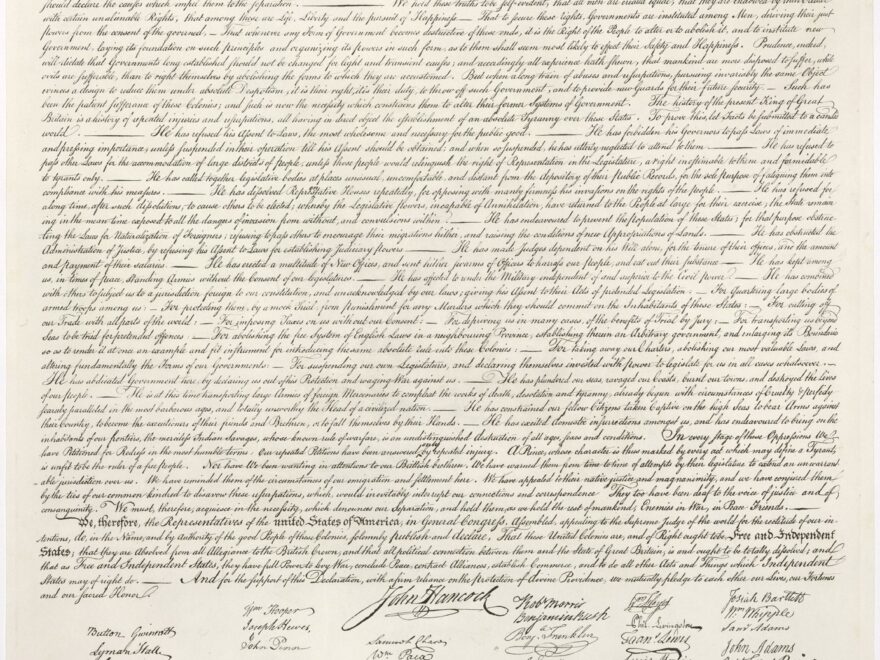 should declare the causes which impel them to the separation. We hold these truths to be self-evident, that all men are created equal, that they are endowed by their Creator
with certain unalienable Rights, that among these are Life, Liberty and the pursuit of Happiness.— That to secure these rights, Governments are instituted among Men, deriving their just
powers from the consent of the governed,— That whenever any Form of Government becomes destructive of these ends, it is the Right of the People to alter or to abolish it, and to institute new
Government, laying its foundation on such principles and organizing its powers in such form, as to them shall seem most likely to effect their Safety and Happiness. Prudence, indeed,
will dictate that Governments long established should not be changed for light and transient causes; and accordingly all experience hath shewn, that mankind are more disposed to suffer, while
evils are sufferable, than to right themselves by abolishing the forms to which they are accustomed. But when a long train of abuses and usurpations, pursuing invariably the same Object
evinces a design to reduce them under absolute Despotism, it is their right, it is their duty, to throw off such Government, and to provide new Guards for their future security.— Such has
been the patient sufferance of these Colonies; and such is now the necessity which constrains them to alter their former Systems of Government. The history of the present King of Great
Britain is a history of repeated injuries and usurpations, all having in direct object the establishment of an absolute Tyranny over these States. To prove this, let Facts be submitted to a candid
world. — He has refused his Assent to Laws, the most wholesome and necessary for the public good. — He has forbidden his Governors to pass Laws of immediate
and pressing importance, unless suspended in their operation till his Assent should be obtained; and when so suspended, he has utterly neglected to attend to them. — He has refused to
pass other Laws for the accommodation of large districts of people, unless those people would relinquish the right of Representation in the Legislature, a right inestimable to them and formidable
to tyrants only. — He has called together legislative bodies at places unusual, uncomfortable, and distant from the depository of their public Records, for the sole purpose of fatiguing them into
compliance with his measures. — He has dissolved Representative Houses repeatedly, for opposing with manly firmness his invasions on the rights of the people. — He has refused for
a long time, after such dissolutions, to cause others to be elected; whereby the Legislative powers, incapable of Annihilation, have returned to the People at large for their exercise; the State remain-
ing in the mean time exposed to all the dangers of invasion from without, and convulsions within. — He has endeavoured to prevent the population of these States; for that purpose obstruc-
ting the Laws for Naturalization of Foreigners; refusing to pass others to encourage their migrations hither, and raising the conditions of new Appropriations of Lands. — He has obstructed the
Administration of Justice, by refusing his Assent to Laws for establishing Judiciary powers. — He has made Judges dependent on his Will alone, for the tenure of their offices, and the amount
and payment of their salaries. — He has erected a multitude of New Offices, and sent hither swarms of Officers to harass our people, and eat out their substance. — He has kept among
us, in times of peace, Standing Armies without the Consent of our legislatures. — He has affected to render the Military independent of and superior to the Civil power. — He has combined
with others to subject us to a jurisdiction foreign to our constitution, and unacknowledged by our laws; giving his Assent to their Acts of pretended Legislation: — For Quartering large bodies of
armed troops among us: — For protecting them, by a mock Trial, from punishment for any Murders which they should commit on the Inhabitants of these States: — For cutting off
our Trade with all parts of the world: — For imposing Taxes on us without our Consent: — For depriving us in many cases, of the benefits of Trial by Jury: — For transporting us beyond
Seas to be tried for pretended offences: — For abolishing the free System of English Laws in a neighbouring Province, establishing therein an Arbitrary government, and enlarging its Boundaries
so as to render it at once an example and fit instrument for introducing the same absolute rule into these Colonies: — For taking away our Charters, abolishing our most valuable Laws, and
altering fundamentally the Forms of our Governments: — For suspending our own Legislatures, and declaring themselves invested with power to legislate for us in all cases whatsoever. —
He has abdicated Government here, by declaring us out of his Protection and waging War against us. — He has plundered our seas, ravaged our Coasts, burnt our towns, and destroyed the lives
of our people. — He is at this time transporting large Armies of foreign Mercenaries to compleat the works of death, desolation and tyranny, already begun with circumstances of Cruelty & perfidy
scarcely paralleled in the most barbarous ages, and totally unworthy the Head of a civilized nation. — He has constrained our fellow Citizens taken Captive on the high Seas to bear Arms against
their Country, to become the executioners of their friends and Brethren, or to fall themselves by their Hands. — He has excited domestic insurrections amongst us, and has endeavoured to bring on the
inhabitants of our frontiers, the merciless Indian Savages, whose known rule of warfare, is an undistinguished destruction of all ages, sexes and conditions. In every stage of these Oppressions We
have Petitioned for Redress in the most humble terms: Our repeated Petitions have been answered only by repeated injury. A Prince, whose character is thus marked by every act which may define a Tyrant,
is unfit to be the ruler of a free people. Nor have We been wanting in attentions to our Brittish brethren. We have warned them from time to time of attempts by their legislature to extend an unwarrant-
able jurisdiction over us. We have reminded them of the circumstances of our emigration and settlement here. We have appealed to their native justice and magnanimity, and we have conjured them
by the ties of our common kindred to disavow these usurpations, which, would inevitably interrupt our connections and correspondence. They too have been deaf to the voice of justice and of
consanguinity. We must, therefore, acquiesce in the necessity, which denounces our Separation, and hold them, as we hold the rest of mankind, Enemies in War, in Peace Friends. —
We, therefore, the Representatives of the united States of America, in General Congress, Assembled, appealing to the Supreme Judge of the world for the rectitude of our in-
tentions, do, in the Name, and by Authority of the good People of these Colonies, solemnly publish and declare, That these United Colonies are, and of Right ought to be Free and Independent
States; that they are Absolved from all Allegiance to the British Crown, and that all political connection between them and the State of Great Britain, is and ought to be totally dissolved; and
that as Free and Independent States, they have full Power to levy War, conclude Peace, contract Alliances, establish Commerce, and to do all other Acts and Things which Independent
States may of right do. — And for the support of this Declaration, with a firm reliance on the protection of divine Providence, we mutually pledge to each other our Lives, our Fortunes
and our sacred Honor.
John Hancock
Button Gwinnett
Lyman Hall
Wm Hooper
Joseph Hewes,
John Penn
Samuel Chase
Wm Paca
Robt Morris
Benjamin Rush
Benj. Franklin
Wm Floyd
Phil. Livingston
Frans. Lewis
Josiah Bartlett
Wm Whipple
Saml Adams
John Adams